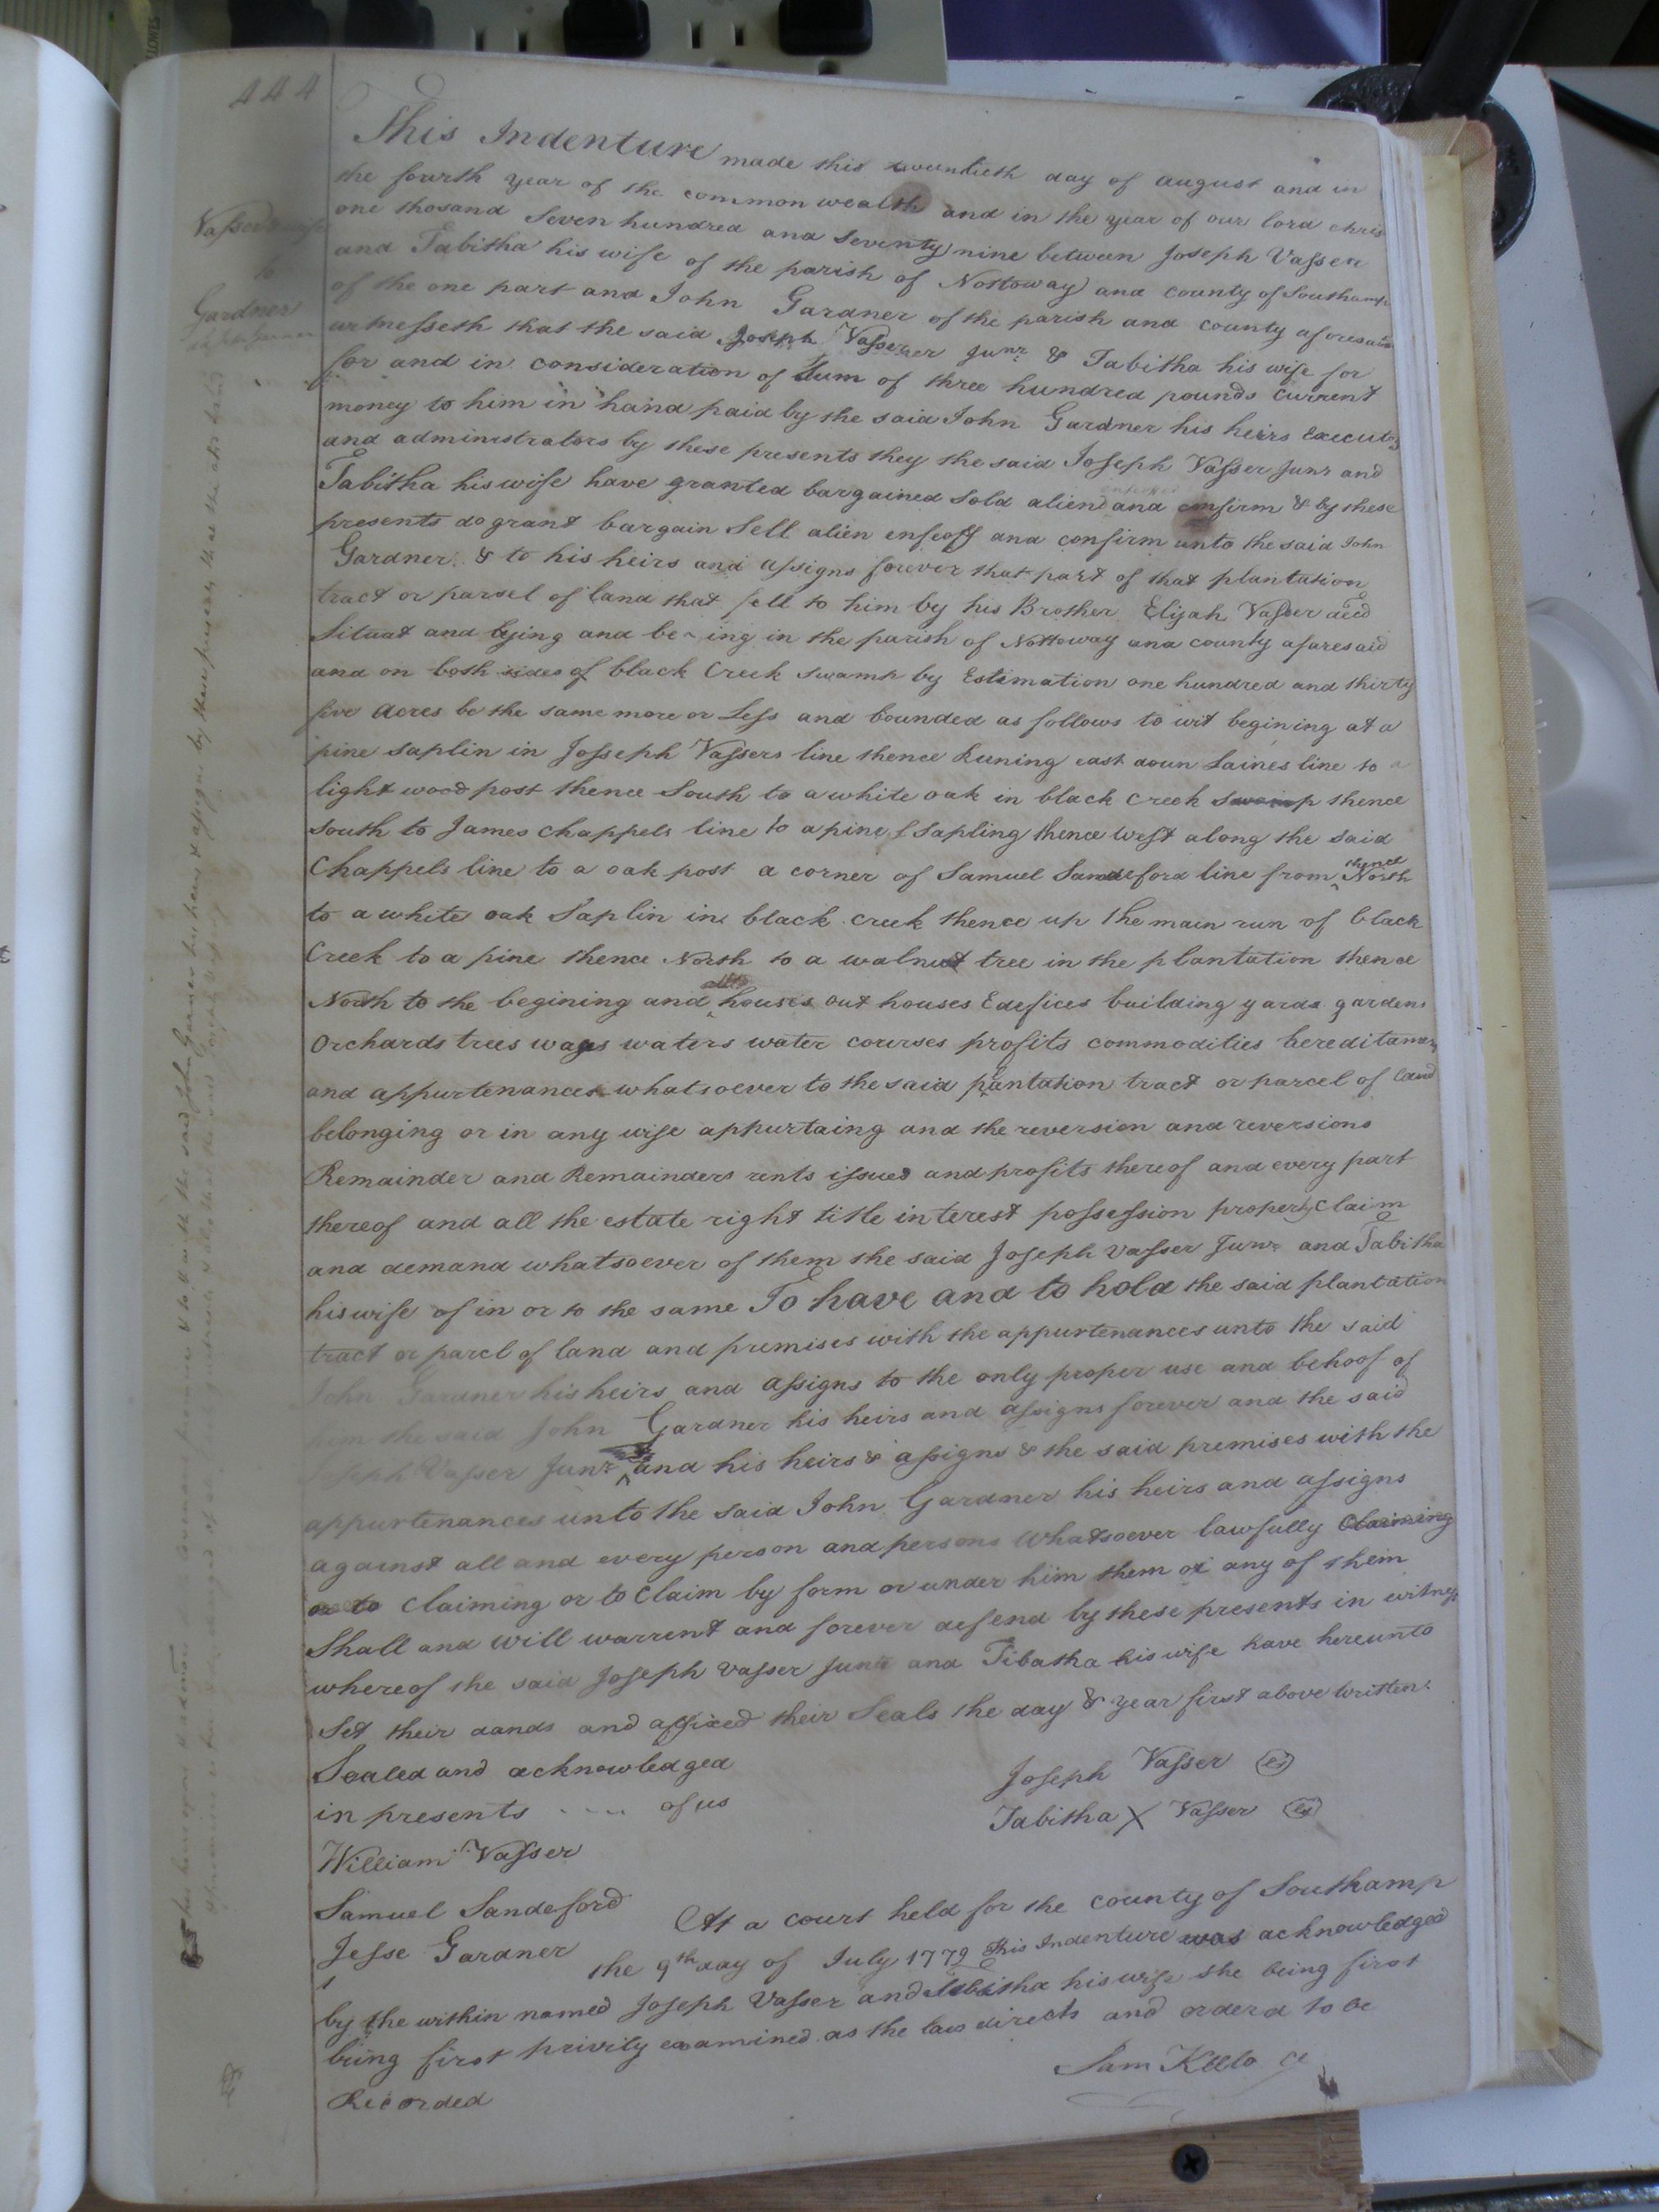 444
This Indenture made this twentieth day of august and in
the fourth year of the common wealth and in the year of our lord chris
one thosand Seven hundred and Seventy nine between Joseph Vasser
and Tabitha his wife of the parish of Nottoway and county of Southamp
of the one part and John Gardner of the parish and county aforesaid
witnesseth that the said Joseph Vasser Junr & Tabitha his wife for
for and in consideration of Sum of three hundred pounds current
money to him in hand paid by the said John Gardner his heirs Executors
and administrators by these presents they the said Joseph Vasser Junr and
Tabitha his wife have granted bargained Sold aliend and confirm & by these
presents do grant bargain Sell alien enfeoff and confirm unto the said John
Gardner & to his heirs and assigns forever that part of that plantation
tract or parsel of land that fell to him by his Brother Elijah Vasser decd
Situat and lying and be-ing in the parish of Nottoway and county afaresaid
and on both sides of black Creek swamp by Estimation one hundred and thirty
five acres be the same more or Less and bounded as follows to wit begining at a
pine saplin in Josseph Vassers line thence Runing east down Laines line to a
light wood post thence South to a white oak in black creek swamp thence
South to James Chappels line to a pine Sapling thence West along the said
Chappels line to a oak post a corner of Samuel Sandeford line from thence North
to a white oak Saplin in black creek thence up the main run of black
Creek to a pine thence North to a walnut tree in the plantation thence
North to the begining and all houses out houses Edefices building yards gardens
Orchards trees ways waters water courses profits commodities hereditamen
and appurtenances whatsoever to the said plantation tract or parcel of land
belonging or in any wise appurtaing and the reversion and reversions
Remainder and Remainders rents issues and profits thereof and every part
thereof and all the estate right title interest possession property claim
and demand whatsoever of them the said Joseph Vasser Junr and Tabitha
his wife of in or to the same To have and to hold the said plantation
tract or parcl of land and premises with the appurtenances unto the said
John Gardner his heirs and assigns to the only proper use and behoof of
him the said John Gardner his heirs and assigns forever and the said
Joseph Vasser Junr and his heirs & assigns & the said premises with the
appurtenances unto the said John Gardner his heirs and assigns
against all and every person and persons Whatsoever lawfully Claiming
or to Claiming or to Claim by form or under him them or any of them
Shall and will warrent and forever defend by these presents in witness
whereof the said Joseph Vasser Junr and Tibatha his wife have hereunto
Set their dands and affixed their Seals the day & year first above written
Sealed and acknowledged
in presents .... of us
Joseph Vasser (LS)
Tabitha X Vasser (LS)
William Vasser
Samuel Sandeford
Jesse Gardner
At a court held for the county of Southamp
the 9th day of July 1779 This Indenture was acknowledged
by the within named Joseph Vasser and Tabitha his wife she being first
being first privily examined as the law directs and orderd to be
Recorded
Sam Kello
Vasser & wife
to
Gardner